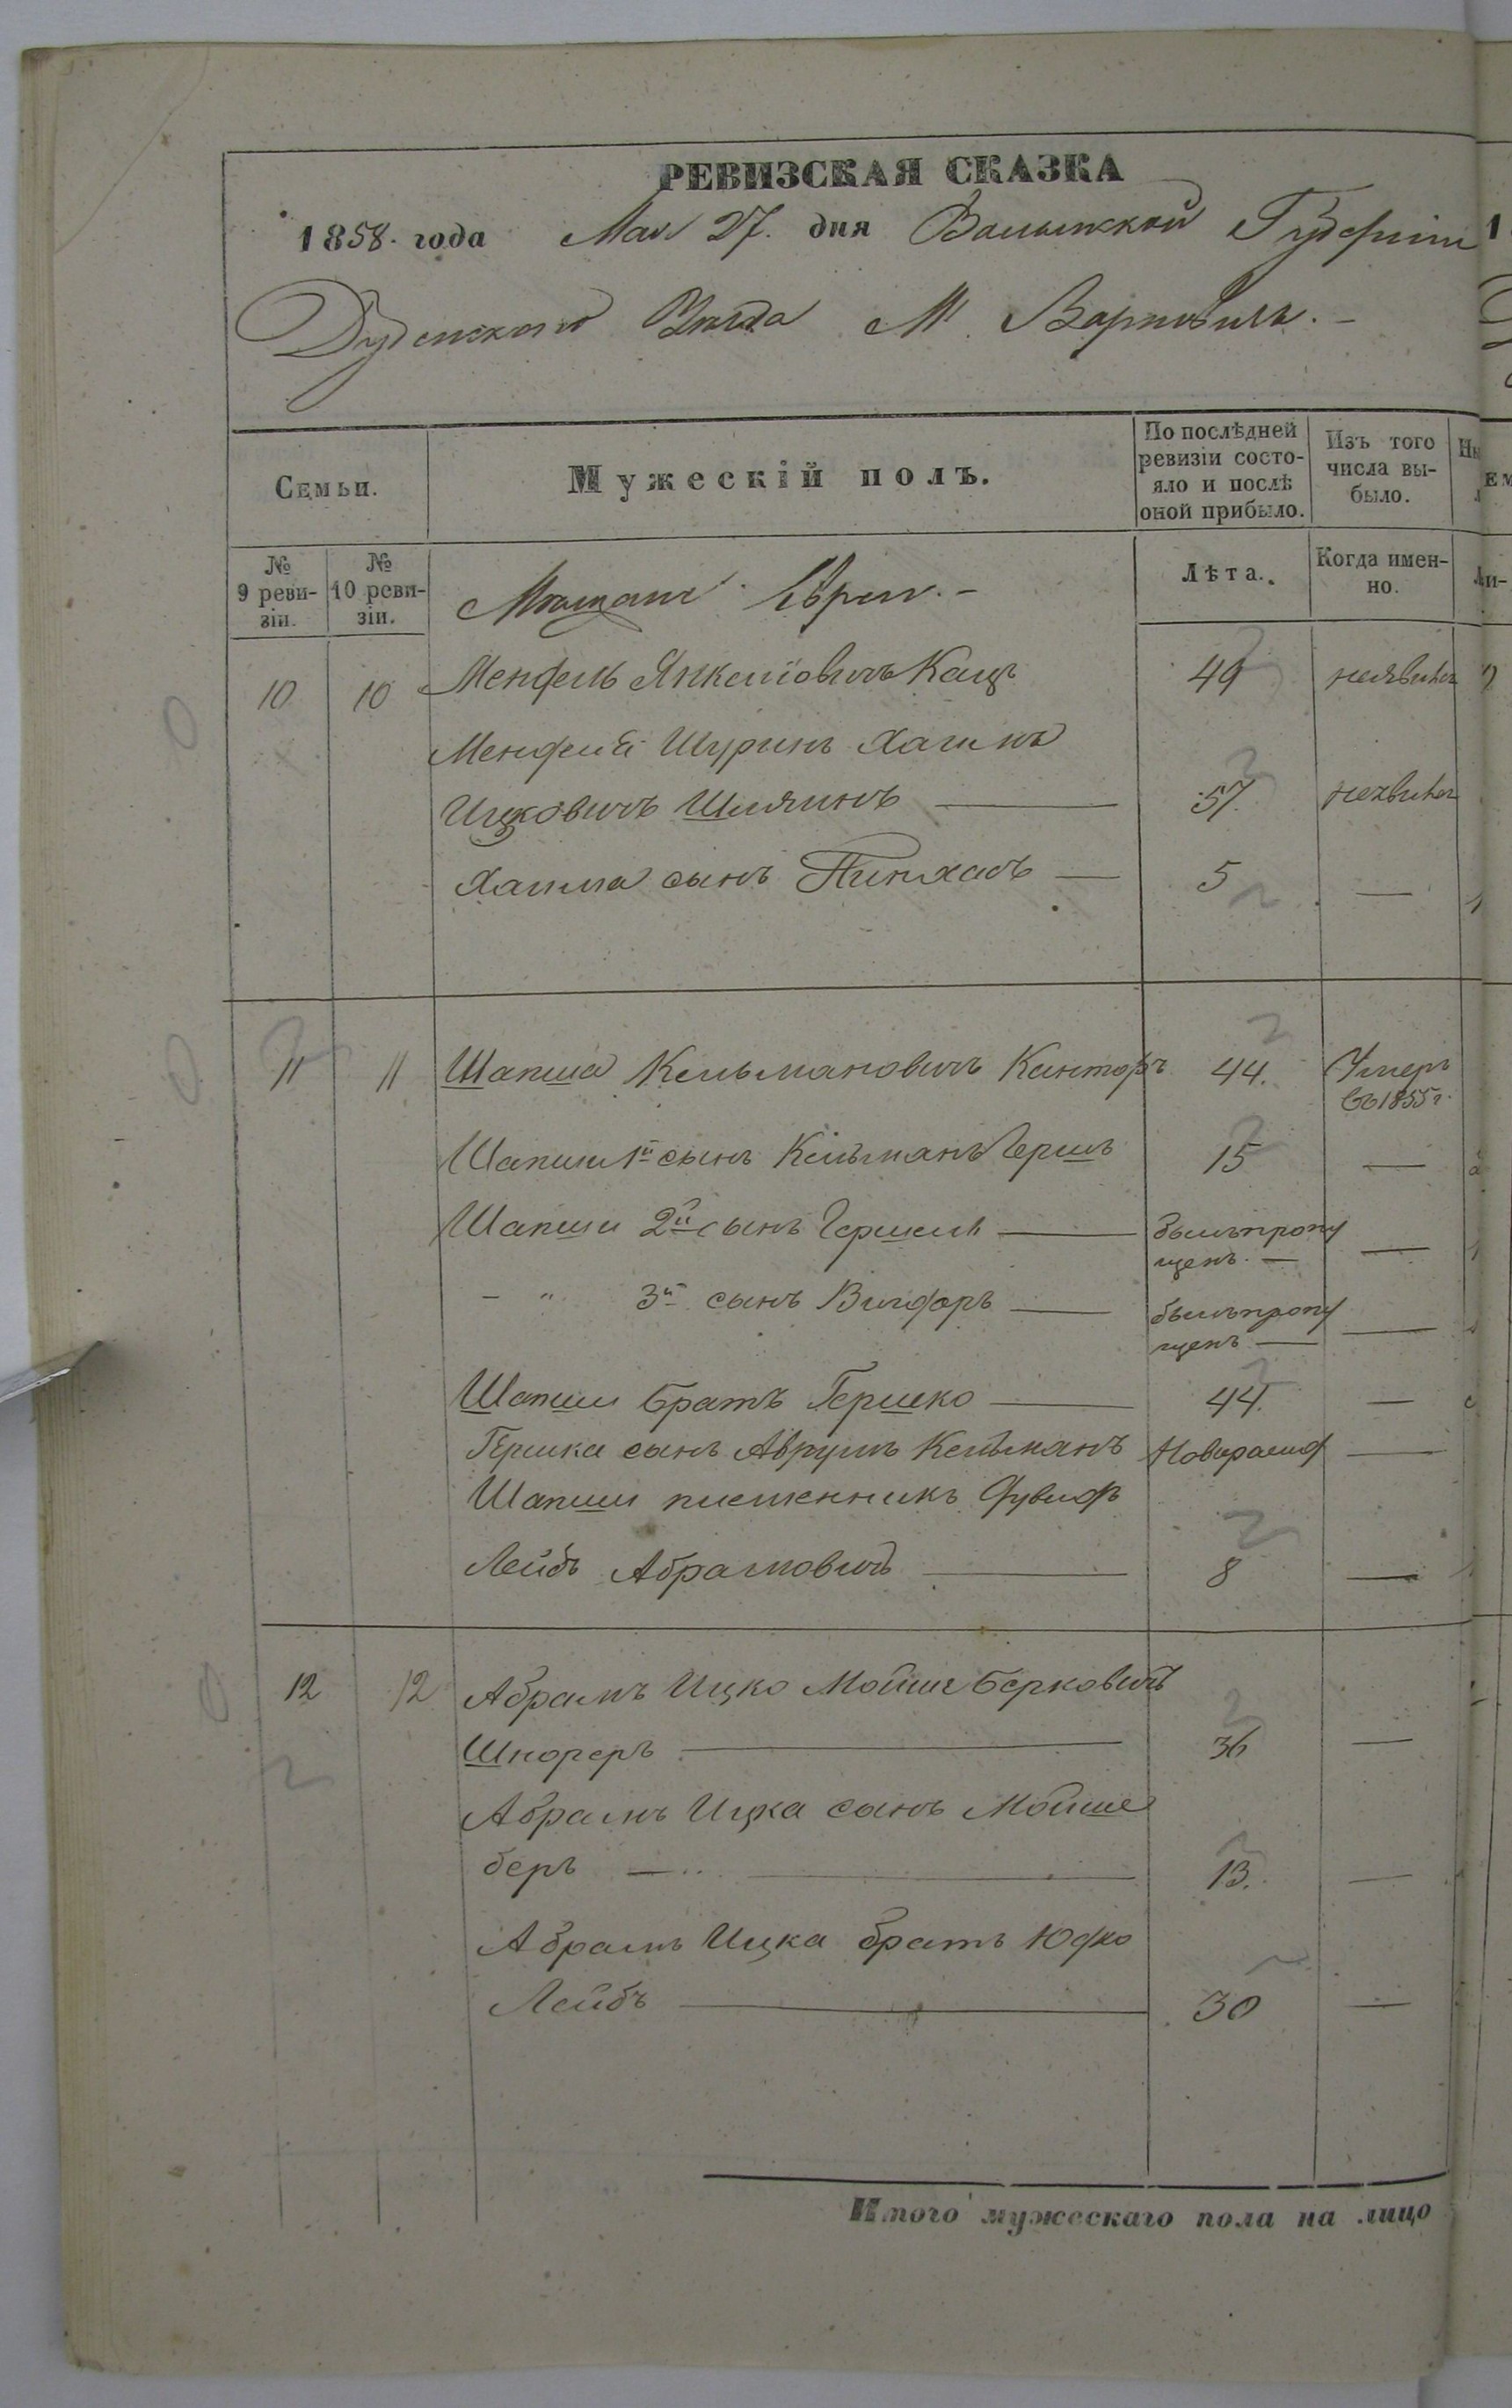 РЕВИЗСКАЯ СКАЗКА
1858. года Мая 27. дня Волынской Губерніи
Дубенскаго Уѣзда М. Варковичь. -
Семьи.
Мужескій полъ.
По послѣдней ревизіи состо-
яло и послѣ
оной прибыло.
Изъ того
числа вы-
было.
№
9 реви-
зіи.
№
10 реви-
зіи.
Мѣщане Евреи. -
Лѣта.
Когда имен-
но.
10 10 Мендель Янкелiовичъ Кацъ 49 неявился
Менделя Шуринъ Хаимъ
Ицковичъ Шлячинъ — 57 неявился
Хаима сынъ Пинхасъ — 5 —
11 11 Шапша Кельмановичъ Канторъ 44. Умеръ
въ 1855 г.
Шапши 1й сынъ Кельманъ Гершъ 15 —
Шапши 2й сынъ Гершель — былъ пропу
щенъ. — —
- " 3й сынъ Вигдоръ — былъ пропу
щенъ — —
Шапши братъ Гершко — 44. —
Гершка сынъ Аврумъ Кельманъ Новорожд —
Шапши племенникъ Дувидъ
Лейбъ Абрамовичъ — 8 —
12 12 Абрамъ Ицко Мойше Берковичъ
Шнореръ — 36 —
Абрамъ Ицка сынъ Мойше
беръ — 13. —
Абрамъ Ицка братъ Юдко
Лейбъ — 30 —
Итого мужескаго пола на лицо